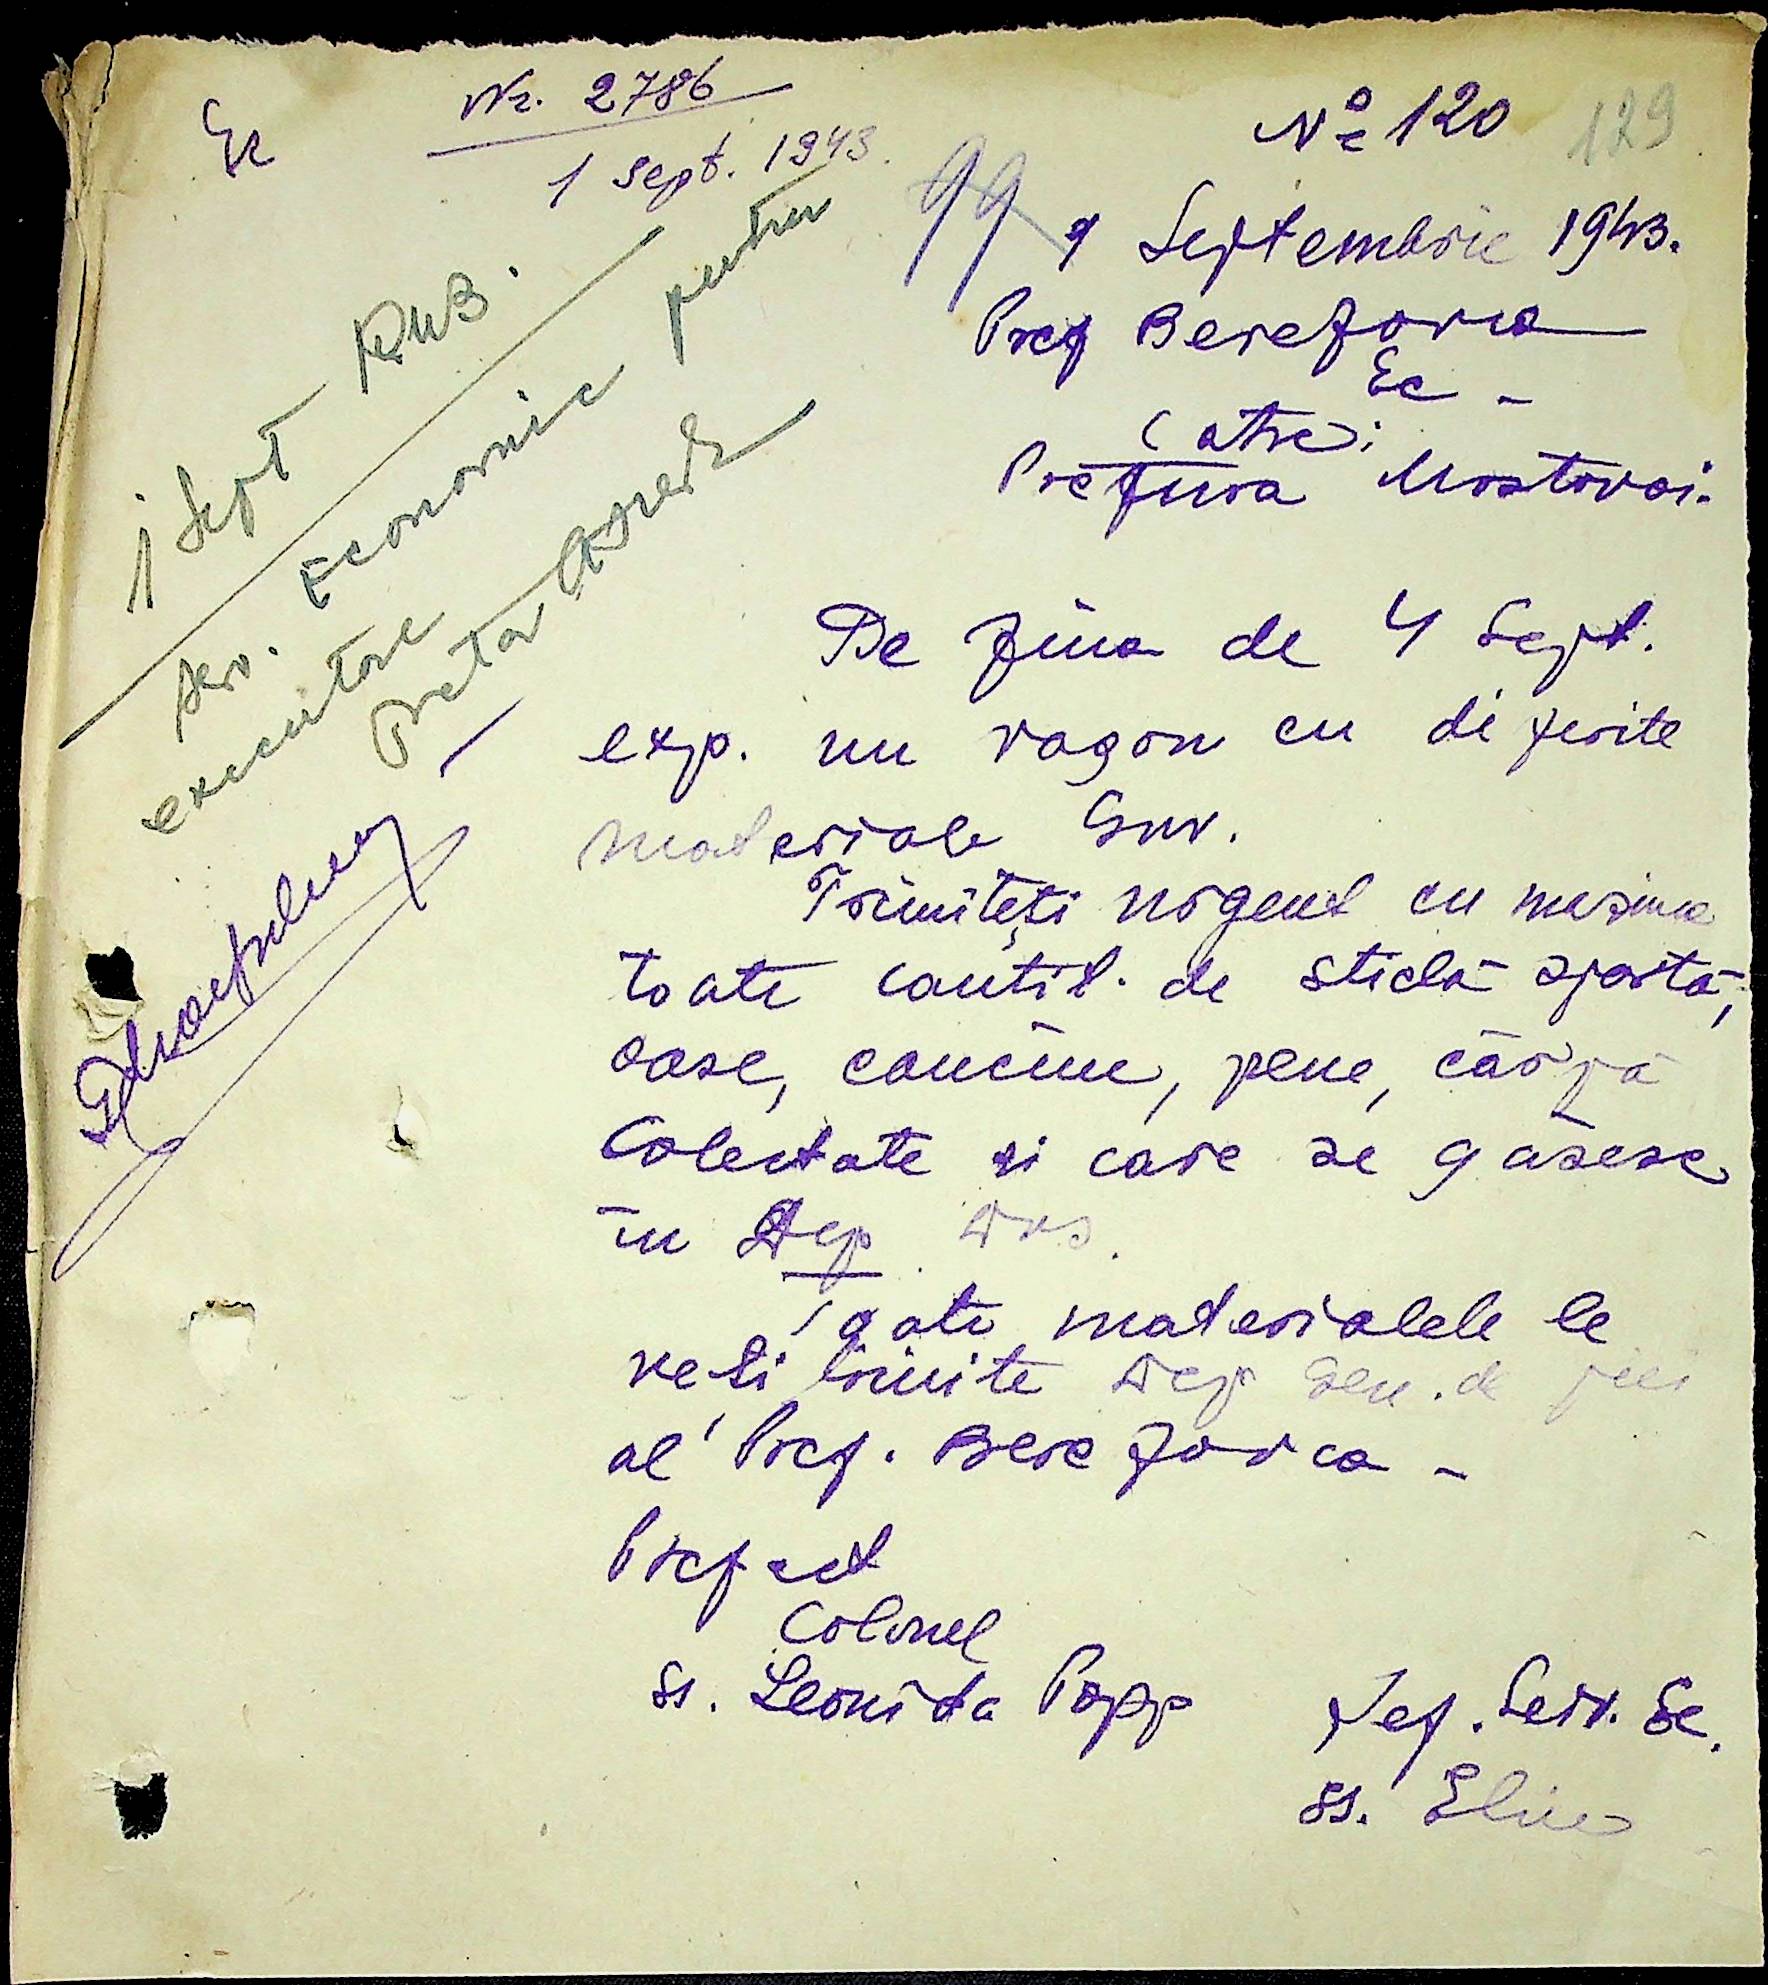 Ec
Nr. 2786
1 Sept. 1943.
No 120
129
99
1 Septembrie 1943.
Pref Berezovca
Ec -
Catre:
Pretura Mostovoi.
1 Sept
Serv. Economic pentru
executare
Pretor
De ziua de 4 Sept.
exp. un vagon cu diferite
materiale Guv.
Trimiteți urgent cu mașina
toate cantit. de sticlă spartă,
oase, pene, cârpă
Colectate si care se găsesc
în Dep Dvs.
Toate materialele le
veți trimite Dep Gen. de
al Pref. Berezovca -
Prefect
Colonel
ss. Leonida Popp
Șef. Serv. Ec.
ss. Elin